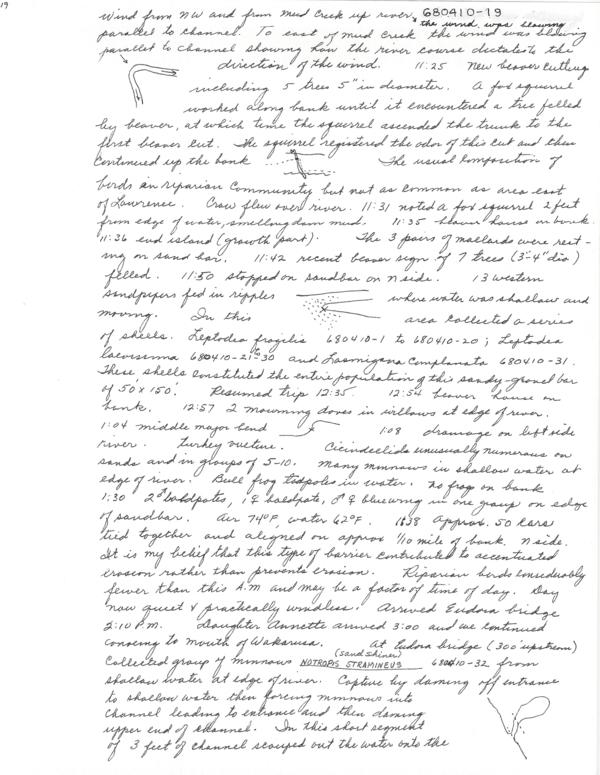 19
680410-19
wind from NW and from Mud Creek up river, the wind was blowing
parallel to channel. To east of Mud Creek the wind was blowing
parallel to channel showing how the river course dictates the
direction of the wind. 11:25 New beaver cutting
including 5 trees 5" in diameter. A fox squirrel
worked along bank until it encountered a tree felled
by beaver, at which time the squirrel ascended the trunk to the
first beaver cut. The squirrel registered the odor of this cut and then
continued up the bank The usual composition of
birds in riparian community but not as common as area east
of Lawrence. Crow flew over river. 11:31 noted a fox squirrel 2 feet
from edge of water, smelling dam mud. 11:35 beaver house on bank.
11:36 end island (growth part). The 3 pairs of mallards were rest-
ing on sand bar. 11:42 recent beaver sign of 7 trees (3"-4" dia)
felled. 11:50 stopped on sandbar on N side. 13 western
sandpipers fed in ripples where water was shallow and
moving. In this area collected a series
of shells. Leptodea fragilis 680410-1 to 680410-20; Leptodea
laevissima 680410-21 to 30 and Lasmigona complanata 680410-31.
These shells constituted the entire population of this sandy-gravel bar
of 50' x 150'. Resumed trip 12:35. 12:54 beaver house on
bank. 12:57 2 mourning doves in willows at edge of river.
1:04 middle major bend 1:08 drainage on left side
river. Turkey vulture. Cicindelids unusually numerous on
sands and in groups of 5-10. Many minnows in shallow water at
edge of river. Bull frog tadpoles in water. No frog on bank
1:30 2♂ baldpates, 1♀ baldpate, ♂ ♀ bluewing in one group on edge
of sandbar. Air 74°F, water 62°F. 1:38 Approx. 50 cars
tied together and aligned on approx 1/10 mile of bank. N side.
It is my belief that this type of barrier contributed to accentuated
erosion rather than prevents erosion. Riparian birds considerably
fewer than this A.M and may be a factor of time of day. Day
now quiet & practically windless. Arrived Eudora bridge
2:10 P.M. Daughter Annette arrived 3:00 and we continued
canoeing to mouth of Wakarusa. At Eudora bridge (300' upstream)
(sand shiner)
Collected group of minnows NOTROPIS STRAMINEUS 680410-32 from
shallow water at edge of river. Capture by daming off entrance
to shallow water then forcing minnows into
channel leading to entrance and then daming
upper end of channel. In this short segment
of 3 feet of channel scouped out the water onto the